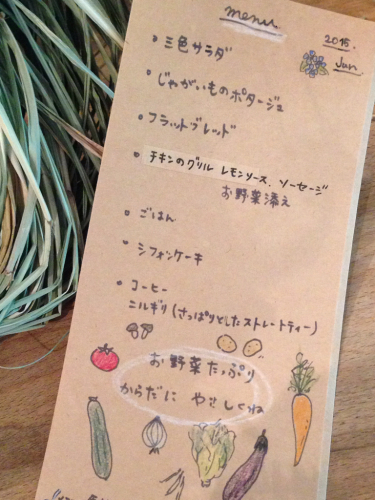 menu
2015.
Jun.
・三色サラダ
・じゃがいものポタージュ
・フラットブレッド
・チキンのグリル レモンソース、ソーセージ
お野菜添え
・ごはん
・シフォンケーキ
・コーヒー
ニルギリ(さっぱりとしたストレートティー)
お野菜たっぷり
からだに やさしくね